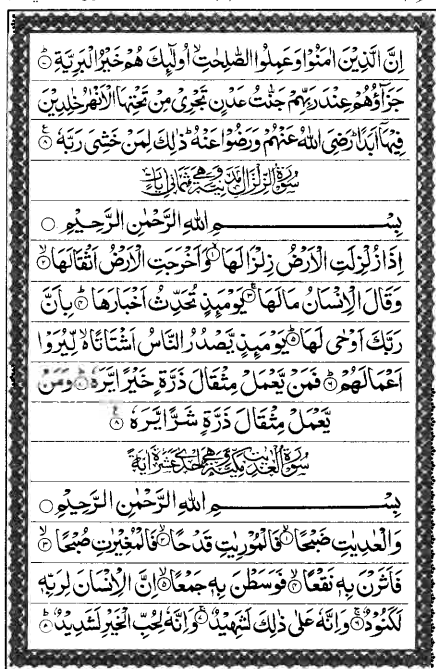 اِنَّ الَّذِيْنَ اٰمَنُوْا وَعَمِلُوا الصّٰلِحٰتِ ۙ اُولٰٓئِكَ هُمْ خَيْرُ الْبَرِيَّةِ ؕ۷
جَزَآؤُهُمْ عِنْدَ رَبِّهِمْ جَنّٰتُ عَدْنٍ تَجْرِيْ مِنْ تَحْتِهَا الْاَنْهٰرُ خٰلِدِيْنَ
فِيْهَاۤ اَبَدًا ؕ رَضِيَ اللّٰهُ عَنْهُمْ وَرَضُوْا عَنْهُ ؕ ذٰلِكَ لِمَنْ خَشِيَ رَبَّهٗ ۸
سورة الزلزال مدنية وهي ثماني ايات
بِسْمِ اللّٰهِ الرَّحْمٰنِ الرَّحِيْمِ
اِذَا زُلْزِلَتِ الْاَرْضُ زِلْزَالَهَا ۙ۱ وَاَخْرَجَتِ الْاَرْضُ اَثْقَالَهَا ۙ۲
وَقَالَ الْاِنْسَانُ مَا لَهَا ۚ۳ يَوْمَئِذٍ تُحَدِّثُ اَخْبَارَهَا ۙ۴ بِاَنَّ
رَبَّكَ اَوْحٰى لَهَا ؕ۵ يَوْمَئِذٍ يَّصْدُرُ النَّاسُ اَشْتَاتًا ۙ۬ لِّيُرَوْا
اَعْمَالَهُمْ ؕ۶ فَمَنْ يَّعْمَلْ مِثْقَالَ ذَرَّةٍ خَيْرًا يَّرَهٗ ؕ۷ وَمَنْ
يَّعْمَلْ مِثْقَالَ ذَرَّةٍ شَرًّا يَّرَهٗ ۸
سورة العديت مكية وهي احدى عشرة اية
بِسْمِ اللّٰهِ الرَّحْمٰنِ الرَّحِيْمِ
وَالْعٰدِيٰتِ ضَبْحًا ۙ۱ فَالْمُوْرِيٰتِ قَدْحًا ۙ۲ فَالْمُغِيْرٰتِ صُبْحًا ۙ۳
فَاَثَرْنَ بِهٖ نَقْعًا ۙ۴ فَوَسَطْنَ بِهٖ جَمْعًا ۙ۵ اِنَّ الْاِنْسَانَ لِرَبِّهٖ
لَكَنُوْدٌ ۚ۶ وَاِنَّهٗ عَلٰى ذٰلِكَ لَشَهِيْدٌ ۚ۷ وَاِنَّهٗ لِحُبِّ الْخَيْرِ لَشَدِيْدٌ ؕ۸